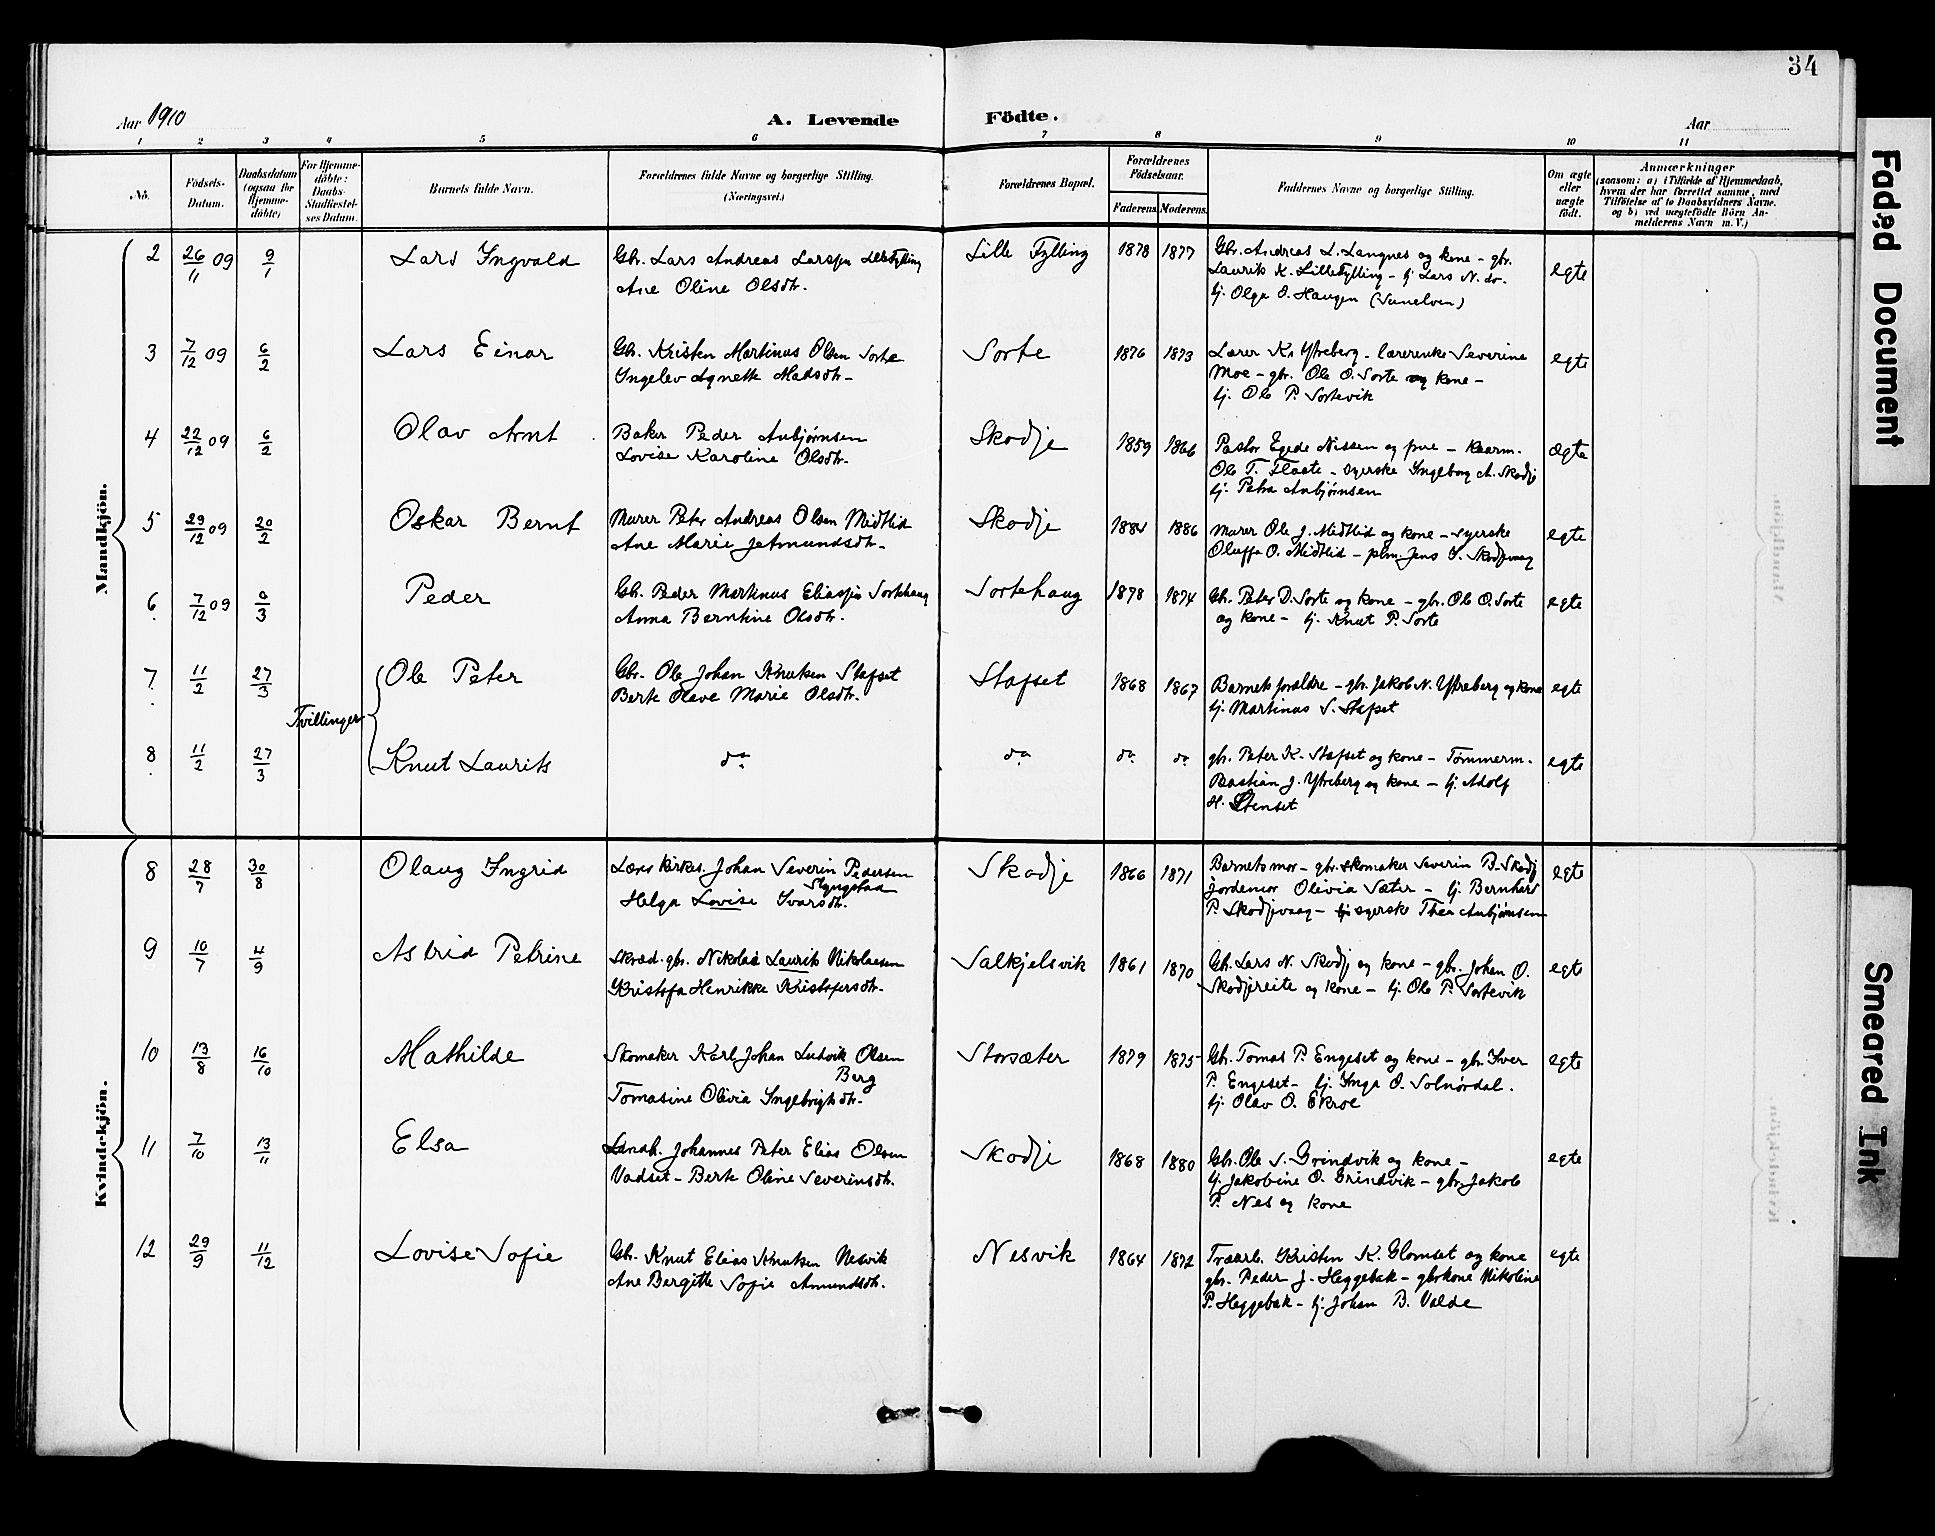 34
Aar 1910
A. Levende Födte.
Aar
1 2 3 4 5 6 7 8 9 10 11
No.
Födsels-Datum.
Daabsdatum (ogsaa for Hjemme-döbte)
For Hjemme-döbte: Daabs-Stadfæstel-ses Datum.
Barnets fulde Navn.
Forældrenes fulde Navne og borgerlige Stilling.
(Næringsvei.)
Forældrenes Bopæl.
Forældrenes Födselsaar.
Faderens. Moderens.
Faddernes Navne og borgerlige Stilling.
Om ægte eller uægte födt.
Anmærkninger
(saasom: a) i Tilfælde af Hjemmedaab,
hvem der har forrettet samme, med
Tilföielse af to Daabsvidners Navne.
og b) ved uægtefödte Börn An-
melderens Navn m. V.)
Mandkjön.
2 26/11 09 9/1 Lars Ingvald
Gbr. Lars Andreas Larssøn Lillefylling
Ane Oline Olsdtr.
Lille Fylling 1878 1877
Gbr. Andreas L. Langnes og kone - gbr.
Laurits K. Lillefylling - tj. Lars N. do.
tj. Olga O. Haugen (Sunelven)
egte
3 7/12 09 6/2 Lars Einar
Gbr. Kristen Martinus Olsen Sorte
Ingelev Agnette Madsdtr.
Sorte 1876 1873
Lærer K. Ytreberg - lærerenke Severine
Moe - gbr. Ole O. Sorte og kone -
tj. Ole P. Sortevik
egte
4 22/12 09 6/2 Olav Arnt
Baker Peder Anbjørnsen
Lovise Karoline Olsdtr.
Skodje 1859 1866
Pastor Egede Nissen og frue -
Ole T. Flaate - syerske Ingeborg A. Skodje
tj. Petra Anbjørnsen
ægte
5 29/12 09 20/2 Oskar Bernt
Murer Peter Andreas Olsen Midtlid
Ane Marie Jetmundsdtr.
Skodje 1884 1886
Murer Ole J. Midtlid og kone - syerske
Oluffa O. Midtlid - plm. Jens I. Skodjevaag
egte
6 7/12 09 /3 Peder
Gbr. Peder Martinus Eliassøn Sortehaug
Anna Berntine Olsdtr.
Sortehaug 1878 1874
Gbr. Peter D. Sorte og kone - gbr. Ole O. Sorte
og kone - tj. Knut P. Sorte
egte
7 11/2 27/3 Ole Peter
Gbr. Ole Johan Knutsen Stafset
Berte Olave Marie Olsdtr.
Stafset 1868 1867
Barnets forældre - gbr. Jakob N. Ytreberg og kone
tj. Martinus S. Stafset
egte
Tvillinger
8 11/2 27/3 Knut Laurits
do. do. do. do.
gbr. Peter K. Stafset og kone - Tømmerm.
Bastian J. Ytreberg og kone - tj. Adolf
H. Stenset
egte
Kvindekjön.
8 28/7 30/8 Olaug Ingrid
Lærer kirkes. Johan Severin Pedersen
Slyngstad
Helga Lovise Ivarsdtr.
Skodje 1866 1871
Barnets mor - gbr. skomaker Severin B. Skodje
jordemor Olivia Sæter - tj. Bernhard
P. Skodjevaag - syerske Thea Anbjørnsen
egte
9 10/7 4/9 Astrid Petrine
Skræd. gbr. Nikolai Laurits Nikolaisen
Kristofa Henrikke Kristofersdtr.
Valkjelsvik 1861 1870
Gbr. Lars N. Skodje og kone - gbr. Johan O.
Skodjereite og kone - tj. Ole P. Sortevik
egte
10 13/8 16/10 Mathilde
Skomaker Karl Johan Ludvik Olsen
Berg
Tomasine Olivia Ingebrigtsdtr.
Storsæter 1879 1875
Gbr. Tomas P. Engeset og kone - gbr. Iver
P. Engeset - tj. Inga O. Solnørdal.
tj. Olav O. Ekroe
egte
11 7/10 13/11 Elsa
Landh. Johannes Peter Elias Olsen
Vadset - Berte Oline Severinsdtr.
Skodje 1868 1880
Gbr. Ole S. Grindvik og kone -
tj. Jakobine O. Grindvik - gbr. Jakob
P. Nes og kone
egte
12 29/9 11/12 Lovise Sofie
Gbr. Knut Elias Knutsen Nesvik
Ane Bergitte Sofie Amundsdtr.
Nesvik 1864 1872
Træarb. Kristen K. Glomset og kone
gbr. Peder J. Heggebak - gbrkone Nikoline
P. Heggebak - tj. Johan B. Valde
egte
Faded Document
Smeared Ink